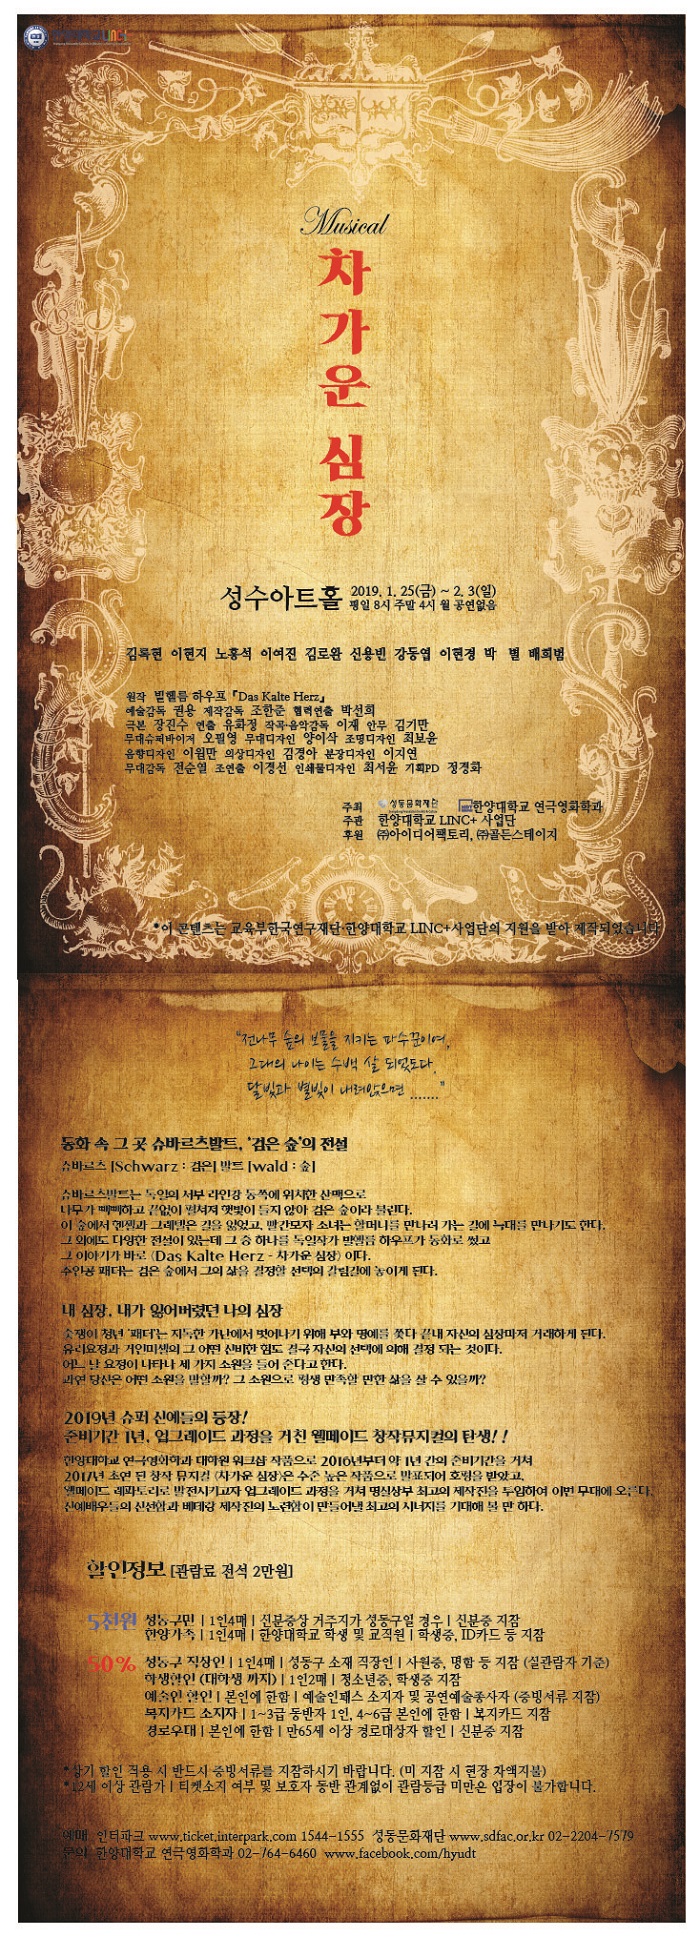 한양대학교 LINC+
Musical
차가운 심장
성수아트홀 2019. 1. 25(금) ~ 2. 3(일)
평일 8시 주말 4시 월 공연없음
김록현 이현지 노홍석 이여진 김로완 신용빈 강동엽 이현경 박 별 배희범
원작 빌헬름 하우프 『Das Kalte Herz』
예술감독 권용 제작감독 조한준 협력연출 박선희
극본 장진수 연출 유화정 작곡·음악감독 이재 안무 김기만
무대슈퍼바이저 오필영 무대디자인 양이삭 조명디자인 최보윤
음향디자인 이원만 의상디자인 김경아 분장디자인 이지연
무대감독 전순열 조연출 이경선 인쇄물디자인 최서윤 기획PD 정경화
주최 성동문화재단 한양대학교 연극영화학과
주관 한양대학교 LINC+ 사업단
후원 ㈜아이디어팩토리, ㈜골든스테이지
*이 콘텐츠는 교육부한국연구재단 한양대학교 LINC+사업단의 지원을 받아 제작되었습니다
"전나무 숲의 보물을 지키는 파수꾼이여,
그대의 나이는 수백 살 되었도다.
달빛과 별빛이 내려앉으면 ......."
동화 속 그 곳 슈바르츠발트, '검은 숲'의 전설
슈바르츠 [Schwarz : 검은] 발트 [wald : 숲]
슈바르츠발트는 독일의 서부 라인강 동쪽에 위치한 산맥으로
나무가 빽빽하고 끝없이 펼쳐져 햇빛이 들지 않아 검은 숲이라 불린다.
이 숲에서 헨젤과 그레텔은 길을 잃었고, 빨간모자 소녀는 할머니를 만나러 가는 길에 늑대를 만나기도 한다.
그 외에도 다양한 전설이 있는데 그 중 하나를 독일작가 빌헬름 하우프가 동화로 썼고
그 이야기가 바로 <Das Kalte Herz - 차가운 심장> 이다.
주인공 패더는 검은 숲에서 그의 삶을 결정할 선택의 갈림길에 놓이게 된다.
내 심장, 내가 잃어버렸던 나의 심장
숯쟁이 청년 '패더'는 지독한 가난에서 벗어나기 위해 부와 명예를 쫓다 끝내 자신의 심장마저 거래하게 된다.
유리요정과 거인미셸의 그 어떤 신비한 힘도 결국 자신의 선택에 의해 결정 되는 것이다.
어느 날 요정이 나타나 세 가지 소원을 들어 준다고 한다.
과연 당신은 어떤 소원을 말할까? 그 소원으로 평생 만족할 만한 삶을 살 수 있을까?
2019년 슈퍼 신예들의 등장!
준비기간 1년, 업그레이드 과정을 거친 웰메이드 창작뮤지컬의 탄생!!
한양대학교 연극영화학과 대학원 워크샵 작품으로 2016년부터 약 1년 간의 준비기간을 거쳐
2017년 초연 된 창작 뮤지컬 <차가운 심장>은 수준 높은 작품으로 발표되어 호평을 받았고,
웰메이드 레파토리로 발전시키고자 업그레이드 과정을 거쳐 명실상부 최고의 제작진을 투입하여 이번 무대에 오른다.
신예배우들의 신선함과 베테랑 제작진의 노련함이 만들어낼 최고의 시너지를 기대해 볼 만 하다.
할인정보 [관람료 전석 2만원]
5천원 성동구민 | 1인4매 | 신분증상 거주지가 성동구일 경우 | 신분증 지참
한양가족 | 1인4매 | 한양대학교 학생 및 교직원 | 학생증, ID카드 등 지참
50% 성동구 직장인 | 1인4매 | 성동구 소재 직장인 | 사원증, 명함 등 지참 (실관람자 기준)
학생할인 (대학생 까지) | 1인2매 | 청소년증, 학생증 지참
예술인 할인 | 본인에 한함 | 예술인패스 소지자 및 공연예술종사자 (증빙서류 지참)
복지카드 소지자 | 1~3급 동반자 1인, 4~6급 본인에 한함 | 복지카드 지참
경로우대 | 본인에 한함 | 만65세 이상 경로대상자 할인 | 신분증 지참
*상기 할인 적용 시 반드시 증빙서류를 지참하시기 바랍니다. (미 지참 시 현장 차액지불)
*12세 이상 관람가 | 티켓소지 여부 및 보호자 동반 관계없이 관람등급 미만은 입장이 불가합니다.
예매 인터파크 www.ticket.interpark.com 1544-1555 성동문화재단 www.sdfac.or.kr 02-2204-7579
문의 한양대학교 연극영화학과 02-764-6460 www.facebook.com/hyudt